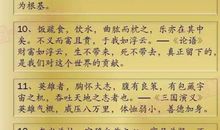 为根基。
10、饭疏食，饮水，曲肱而枕之，乐亦在其中矣。不义而富且贵，于我如浮云。——《论语》
财富如浮云，生不带来，死不带去，真正留下的，是我们对这个世界的贡献。
11、英雄者，胸怀大志，腹有良策，有包藏宇宙之机，吞吐天地之志者也。——《三国演义》
英雄气概，威压八方，体恤弱小，善德加身。